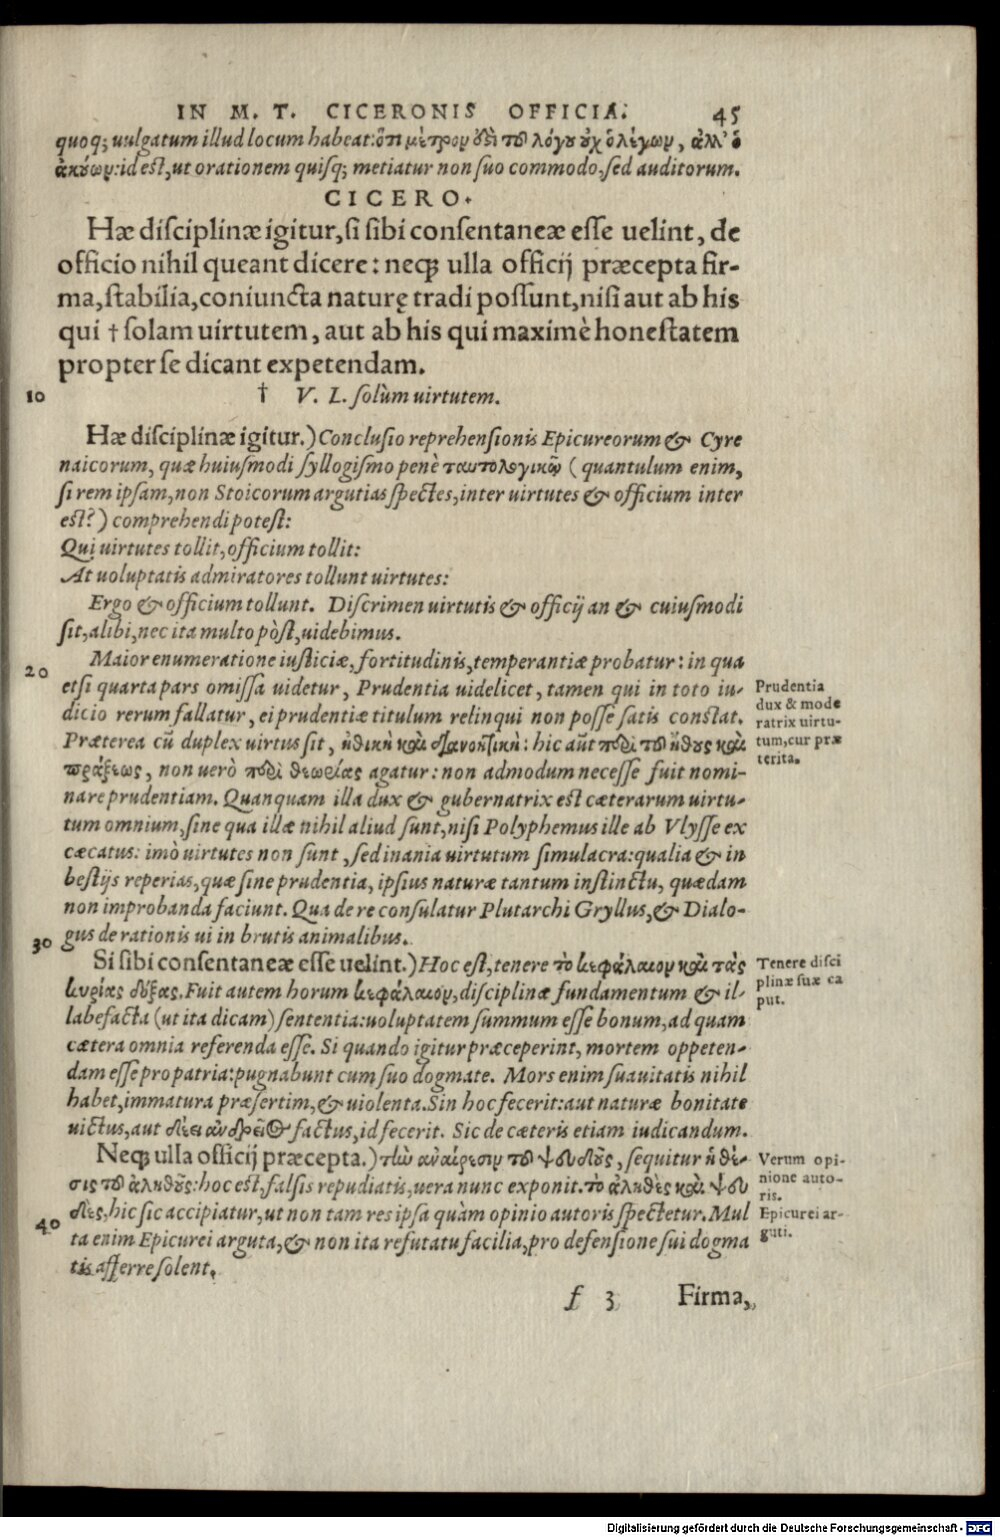 IN M. T. CICERONIS OFFICIA. 45
quoq; uulgatum illud locum habeat: ὅτι μέτρον δεῖ τοῦ λόγου οὐχ ὁ λέγων, ἀλλ' ὁ
ἀκούων: id est, ut orationem quisq; metiatur non suo commodo, sed auditorum.
CICERO.
Hæ disciplinæ igitur, si sibi consentaneæ esse uelint, de
officio nihil queant dicere: neq; ulla officij præcepta fir-
ma, stabilia, coniuncta naturę tradi possunt, nisi aut ab his
qui † solam uirtutem, aut ab his qui maximè honestatem
propter se dicant expetendam.
10 † V. L. solùm uirtutem.
Hæ disciplinæ igitur.) Conclusio reprehensionis Epicureorum & Cyre
naicorum, quæ huiusmodi syllogismo penè ταυτολογικῷ (quantulum enim,
si rem ipsam, non Stoicorum argutias spectes, inter uirtutes & officium inter
est?) comprehendi potest:
Qui uirtutes tollit, officium tollit:
At uoluptatis admiratores tollunt uirtutes:
Ergo & officium tollunt. Discrimen uirtutis & officij an & cuiusmodi
sit, alibi, nec ita multo pòst, uidebimus.
20 Maior enumeratione iusticiæ, fortitudinis, temperantiæ probatur: in qua
etsi quarta pars omissa uidetur, Prudentia uidelicet, tamen qui in toto iu-
dicio rerum fallatur, ei prudentiæ titulum relinqui non posse satis constat.
Præterea cũ duplex uirtus sit, ἠθικὴ καὶ διανοητικὴ: hic aũt περὶ τοῦ ἤθους καὶ
πράξεως, non uerò περὶ θεωρίας agatur: non admodum necesse fuit nomi-
nare prudentiam. Quanquam illa dux & gubernatrix est cæterarum uirtu-
tum omnium, sine qua illæ nihil aliud sunt, nisi Polyphemus ille ab Vlysse ex
cæcatus: imò uirtutes non sunt, sed inania uirtutum simulacra: qualia & in
bestijs reperias, quæ sine prudentia, ipsius naturæ tantum instinctu, quædam
non improbanda faciunt. Qua de re consulatur Plutarchi Gryllus, & Dialo-
30 gus de rationis ui in brutis animalibus.
Prudentia
dux & mode
ratrix uirtu-
tum, cur præ
terita.
Si sibi consentaneæ esse uelint.) Hoc est, tenere τὸ κεφάλαιον καὶ τὰς
κυρίας δόξας. Fuit autem horum κεφάλαιον, disciplinæ fundamentum & il-
labefacta (ut ita dicam) sententia: uoluptatem summum esse bonum, ad quam
cætera omnia referenda esse. Si quando igitur præceperint, mortem oppeten-
dam esse pro patria: pugnabunt cum suo dogmate. Mors enim suauitatis nihil
habet, immatura præsertim, & uiolenta. Sin hoc fecerit: aut naturæ bonitate
uictus, aut factus, id fecerit. Sic de cæteris etiam iudicandum.
Tenere disci
plinæ suæ ca
put.
Neq; ulla officij præcepta.) τὴν ἀναίρεσιν τοῦ ψευδοῦς, sequitur ἡ θέ-
σις τοῦ ἀληθοῦς: hoc est, falsis repudiatis, uera nunc exponit. τὸ ἀληθὲς καὶ ψευ
δὲς, hic sic accipiatur, ut non tam res ipsa quàm opinio autoris spectetur. Mul
40 ta enim Epicurei arguta, & non ita refutatu facilia, pro defensione sui dogma
tis afferre solent.
Verum opi-
nione auto-
ris.
Epicurei ar-
guti.
f 3 Firma,
Digitalisierung gefördert durch die Deutsche Forschungsgemeinschaft - DFG